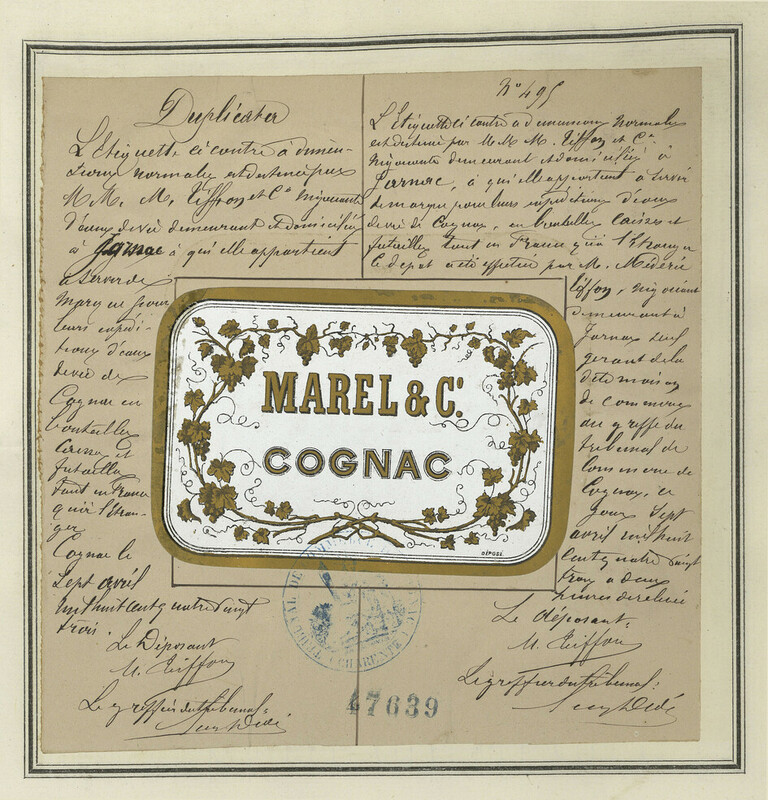 Duplicata
L'Etiquette ci contre à dimen-
sions normales est destinée par
M.M. M. Tiffon et Cie négociants
d'eaux de vie demeurant et domiciliés
à Jarnac à qui elle appartient
à servir de
Marque pour
leurs expédi-
tions d'eaux
de vie de
Cognac en
bouteilles
caisses et
futailles
tant en France
qu'à l'étran-
ger
Cognac le
Sept avril
mil huit cent quatre vingt
trois.
Le Déposant
M. Tiffon
Le greffier du tribunal:
N° 495
L'Etiquette ci contre à dimensions normales
est destinée par M.M. M. Tiffon et Cie
négociants demeurant et domiciliés à
Jarnac, à qui elle appartient à servir
de marque pour leurs expéditions d'eaux
de vie de Cognac, en bouteilles caisses et
futailles tant en France qu'à l'étranger
Le dépôt a été effectué par M. Médéric
Tiffon, négociant
demeurant à
Jarnac seul
gérant de la
dite maison
de commerce
au greffe du
tribunal de
Commerce de
Cognac, ce
jour Sept
avril mil huit
cent quatre vingt
trois à deux
heures de relevée
Le déposant.
M. Tiffon
Le greffier du tribunal:
MAREL & Cie.
COGNAC
DÉPOSÉ
TRIBUNAL DE COMMERCE
CHARENTE
47639